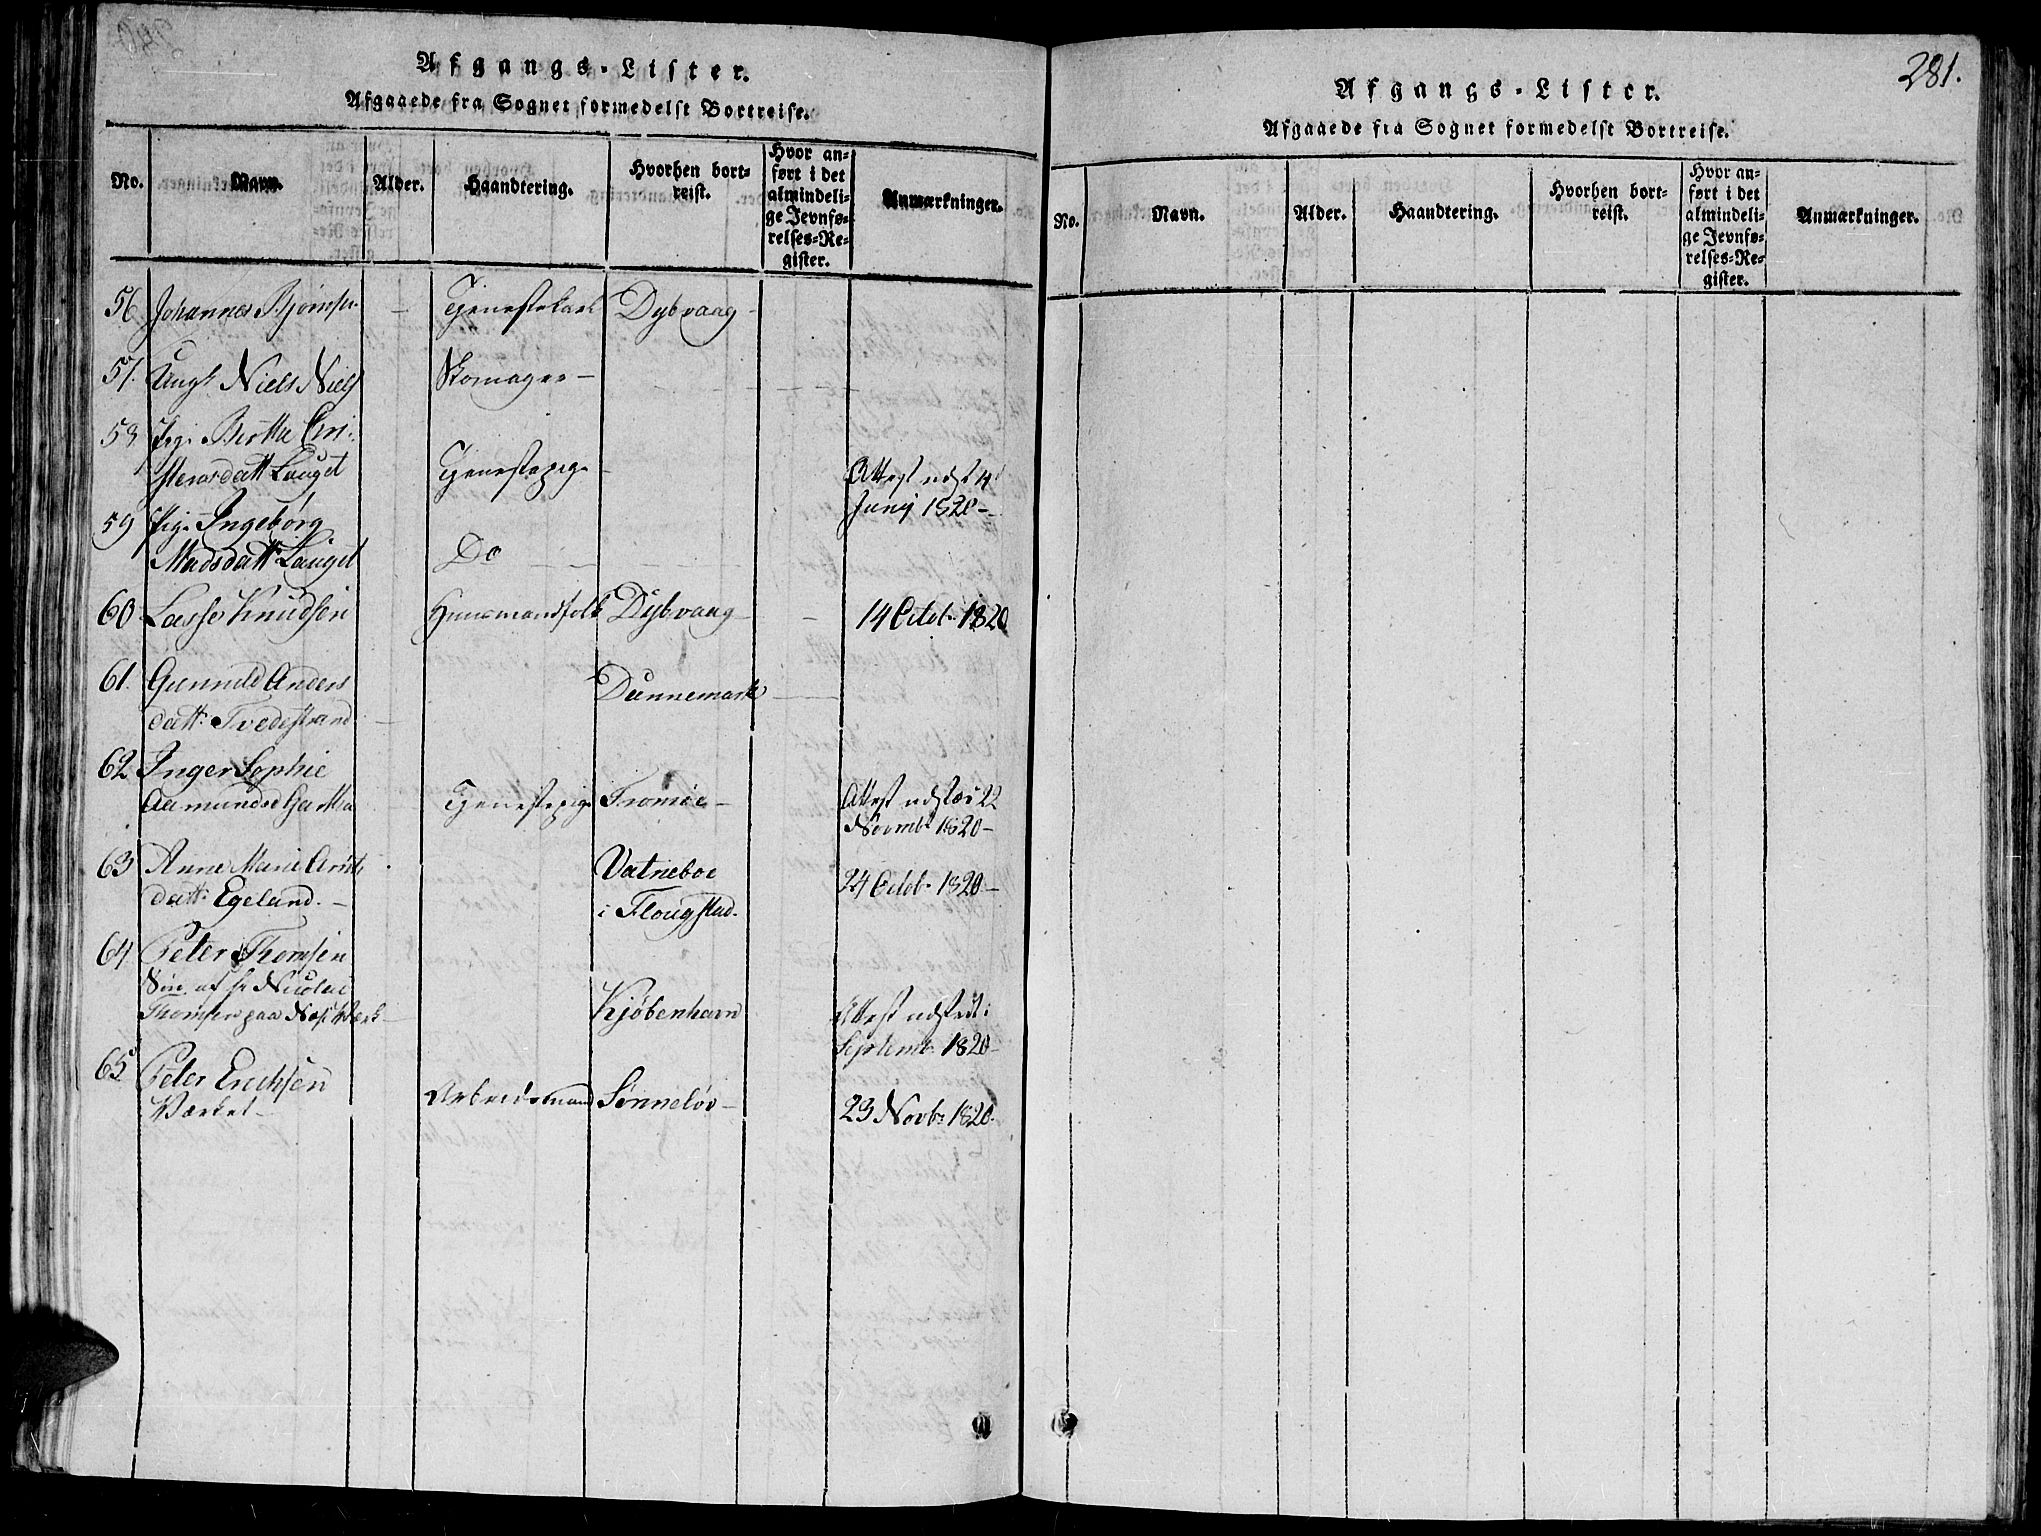 Afgangs-Lister.
Afgaaede fra Sognet formedelst Bortreise.
No.
Navn.
Alder.
Haandtering.
Hvorhen bort-
reist.
Hvor an-
ført i det
almindeli-
ge Jevnfø-
relses-Re-
gister.
Anmærkninger.
56 Johannes Bjørnsen - Tjenestekarl Dybvaag -
57. Ungk Niels Niels Skomager -
58 Pige Berthe
datt Lauget Tjenestepige - Attest udst 4
59 Pige Ingeborg Junij 1820 -
Madsdatt Lauget Do - - -
60 Lasse Knudsen Huusmandsfolk Dybvaag - 14 Octob. 1820
61. Gunnild Anders Dannemark
datt. Tvedestrand -
62 Inger Sophie
Aamundsd Gartha - Tjenestepige Tromøe - Attest udstæd 22
Novmbr 1820 -
63 Anne Marie Vatneboe
datt. Egeland. - i Flougstad. 24 Octob. 1820 -
64 Peter Thomsen
Søn af Hr Nicolai
Thomsen paa Næs Værk - Kjøbenhavn Attest udstedt i
Septemb. 1820 -
65 Peter Erichsen
Værket - Arbeidsmand Sønneløv - 23 Novbr 1820.
281.
Afgangs-Lister.
Afgaaede fra Sognet formedelst Bortreise.
No.
Navn.
Alder.
Haandtering.
Hvorhen bort-
reist.
Hvor an-
ført i det
almindeli-
ge Jevnfø-
relses-Re-
gister.
Anmærkninger.